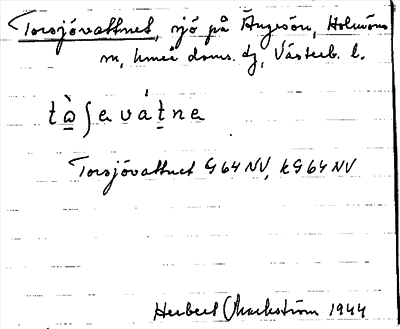 Torsjövattnet, sjö på Ängesön, Holmöns
sn, Umeå doms. dj, Västerb. l.
tɷ̀ʃevátne
Torsjövattnet G 64 NV, kG 64 NV
Herbert Markström 1944